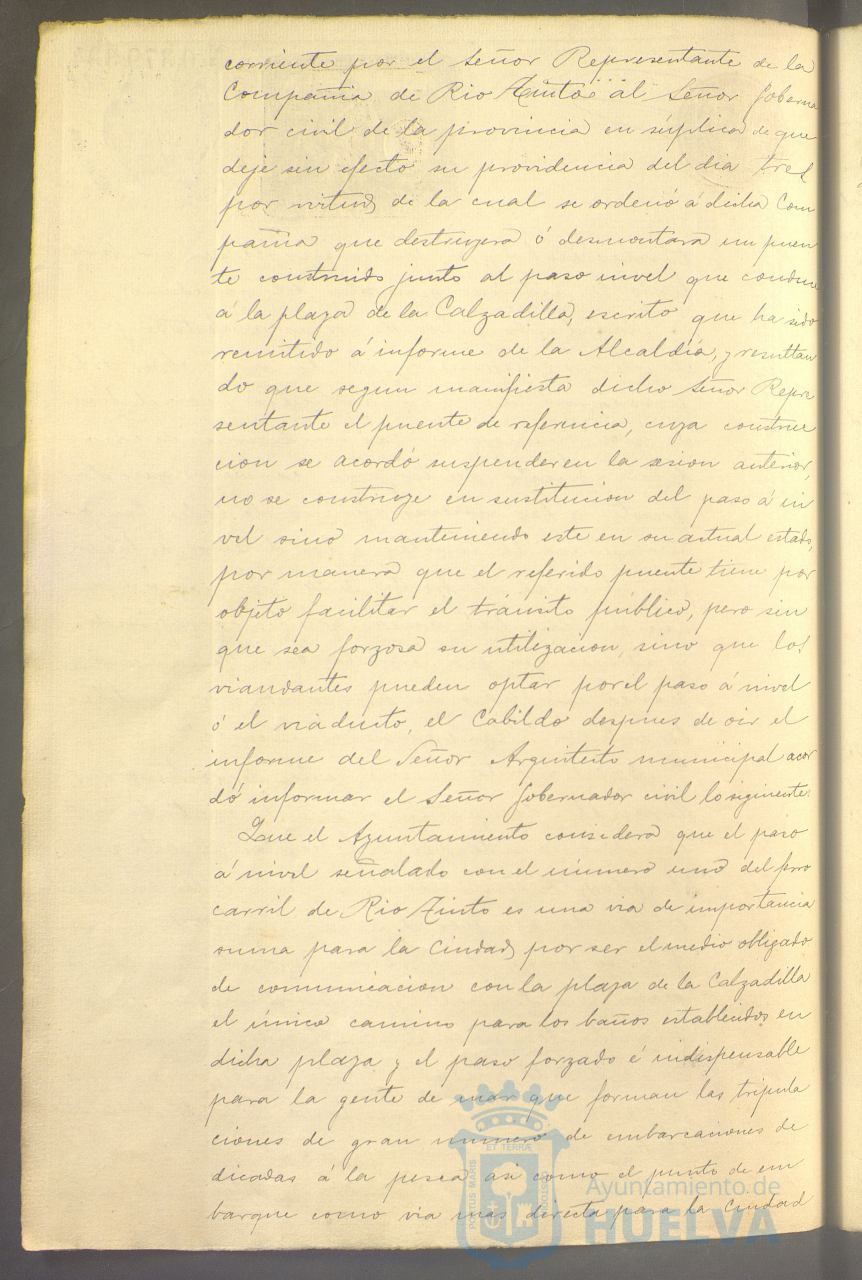 corriente por el Señor Representante de la
Compañia de Rio Tinto al Señor Goberna
dor civil de la provincia en súplica de que
deje sin efecto su providencia del dia tres
por virtud de la cual se ordenó á dicha Com
pañia que destruyera ó desmontara un puen
te construido junto al paso nivel que conduce
á la plaza de la Calzadilla, escrito que ha sido
remitido á informe de la Alcaldía, y resultan
do que segun manifiesta dicho Señor Repre
sentante el puente de referencia, cuya construc
cion se acordó suspender en la sesion anterior,
no se construye en sustitucion del paso á ni
vel sino manteniendo este en su actual estado,
por manera que el referido puente tiene por
objeto facilitar el tránsito público, pero sin
que sea forzosa su utilizacion, sino que los
viandantes pueden optar por el paso á nivel
ó el viaducto, el Cabildo despues de oir el
informe del Señor Arquitecto municipal acor
dó informar el Señor Gobernador civil lo siguiente:
Que el Ayuntamiento considera que el paso
á nivel señalado con el número uno del ferro
carril de Rio Tinto es una via de importancia
suma para la Ciudad, por ser el medio obligado
de comunicacion con la plaza de la Calzadilla
el único camino para los baños establecidos en
dicha plaza y el paso forzado é indispensable
para la gente de mar que forman las tripula
ciones de gran numero de embarcaciones de
dicadas á la pesca asi como el punto de em
barque como via mas directa para la Ciudad
PORTUS MARIS
ET TERRÆ
CUSTODIA
Ayuntamiento de
HUELVA